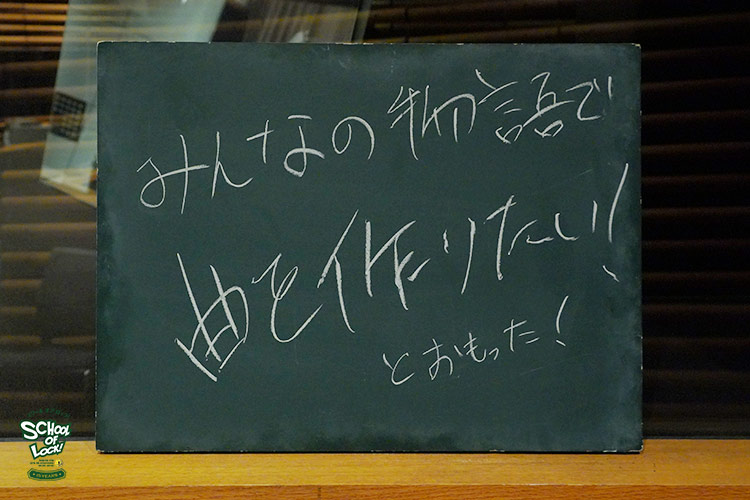 みんなの物語で
曲を作りたい!
とおもった!
SCHOOL
OF
LOCK!